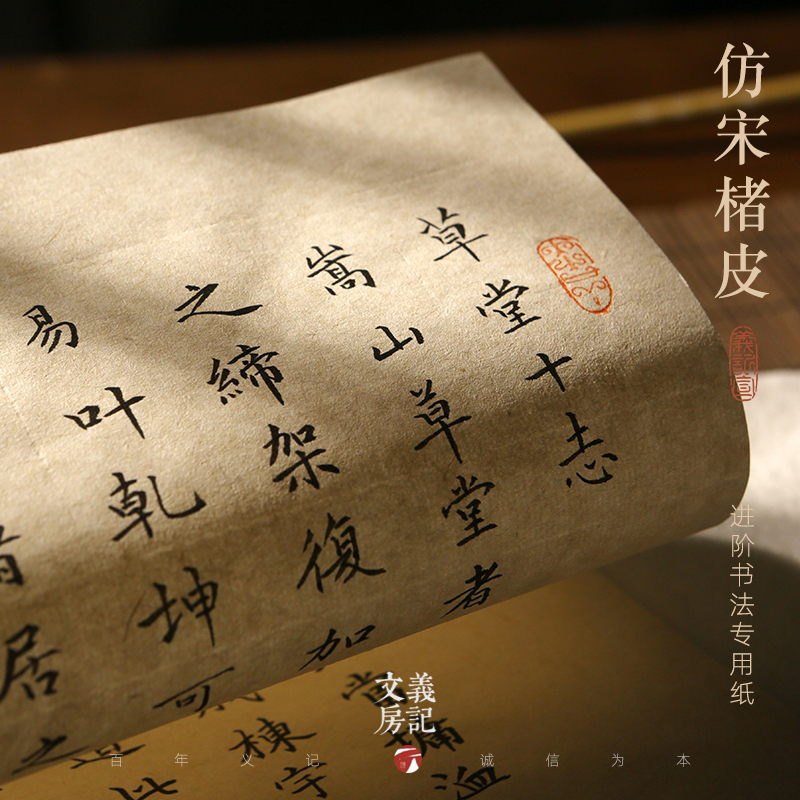 仿宋楮皮
进阶书法专用纸
草堂十志
嵩山草堂者
之締架復加
易叶乾坤可
居之
棟宇
義記
文房
百年义记 诚信为本